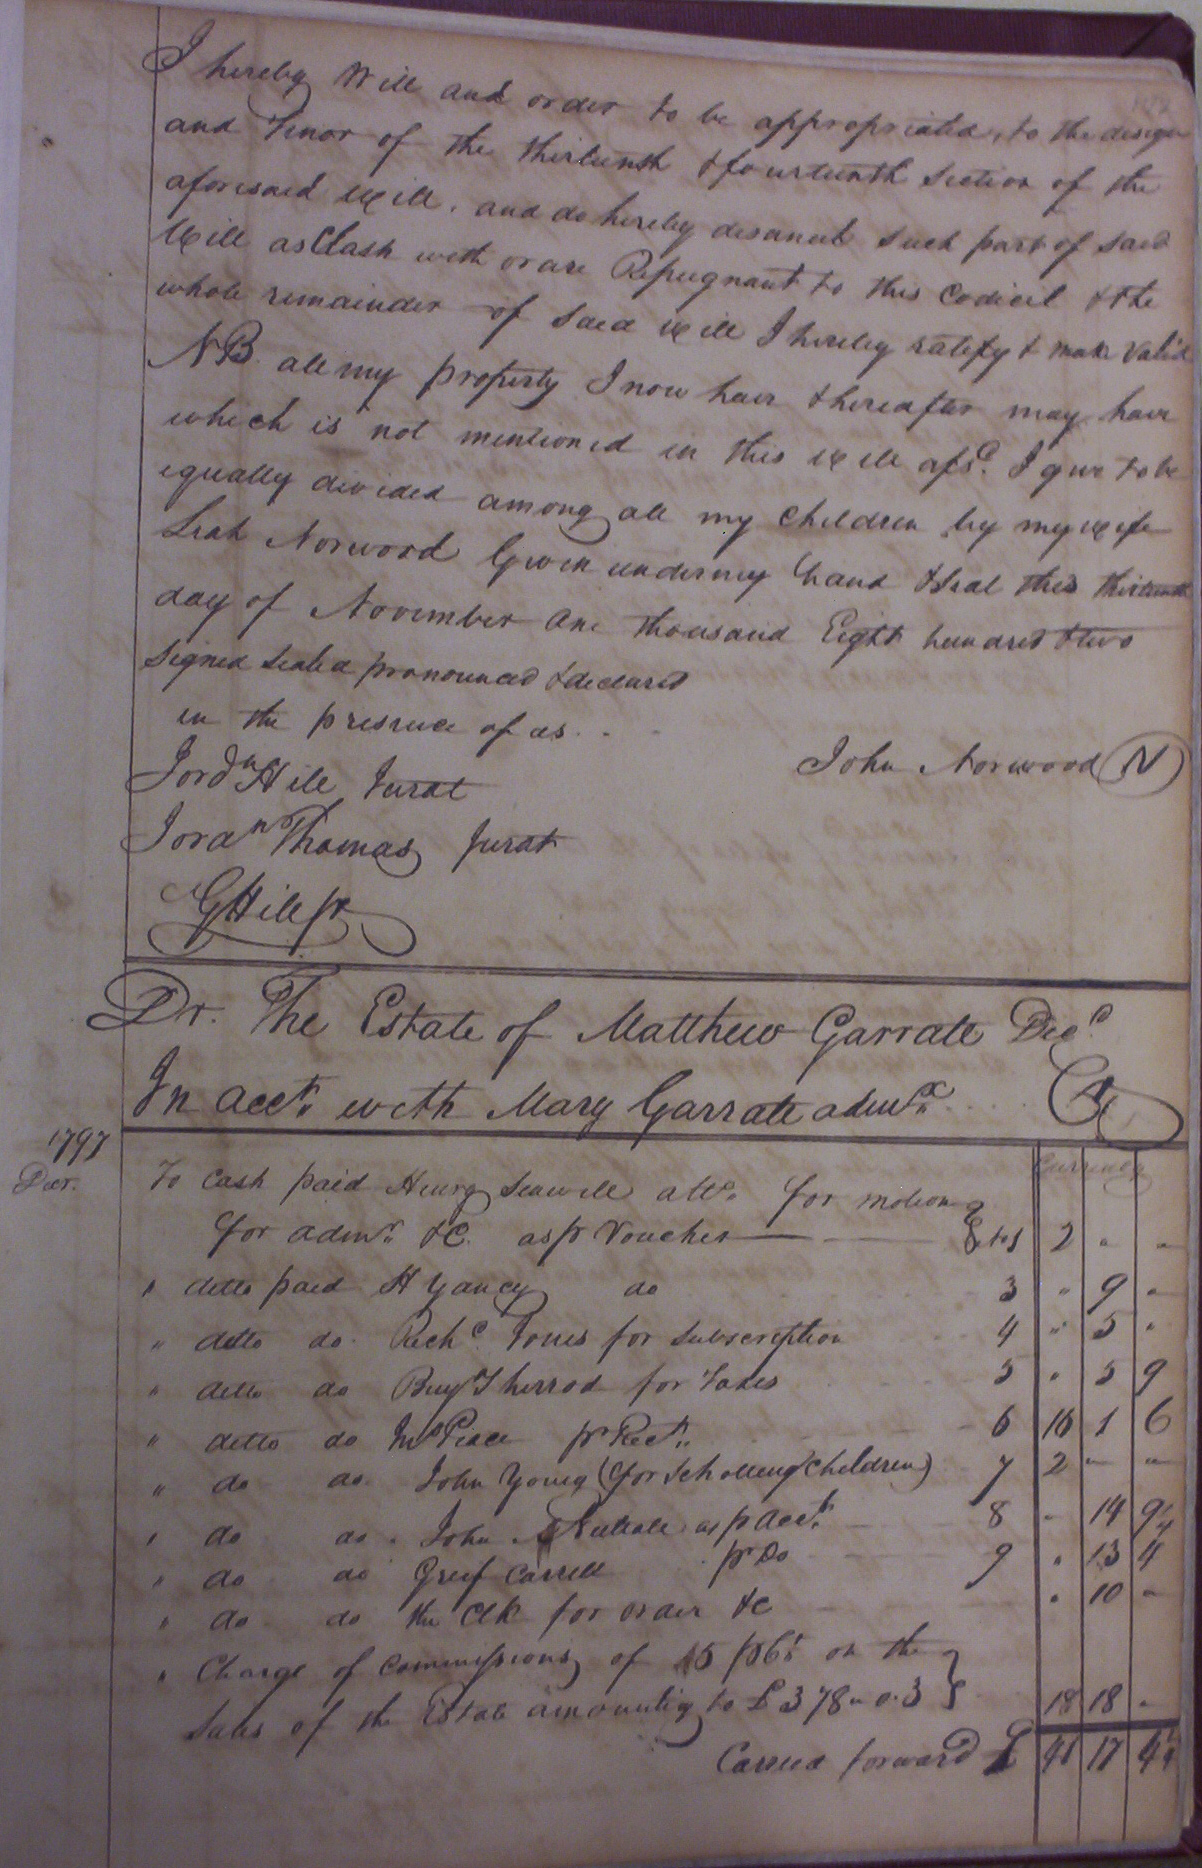 I hereby Will and order to be appropriated, to the design
and Tenor of the thirteenth & fourteenth Section of the
aforesaid Will. and do hereby disanul such part of said
Will as Clash with or are Repugnant to this Codicil & the
whole remainder of said Will I hereby ratify & make Valid
NB. all my property I now have & hereafter may have
which is not mentioned in this Will afsd. I give to be
equally divided among all my Children by my Wife
Leah Norwood Given under my hand & Seal this thirteenth
day of November One thousand Eight hundred & two
Signed Sealed pronounced & declared
in the presence of us. . .
John Norwood (N)
Jordn Hill Jurat
Jordn Thomas Jurat
G Hill Jr
Dr. The Estate of Matthew Garrate Decd.
In acct. with Mary Garrate admx. . . . . Cr
1797
Currency
Decr.
To Cash paid Henry Seawell atto. for motion
for admn. &C. as pr Voucher 2 " "
" ditto paid H Yancey do 3 " 9 "
" ditto do Richd. Jones for Subscription 4 " 5 "
" ditto do Benj Sherrod for Taxes 5 " 5 9
" ditto do Peace pr Rect. 6 16 1 6
" do do John Young (for Schooling Children) 7 2 " "
" do do John as p Acct. 8 " 14 9 1/4
" do do Greif Carrell pr Do 9 " 13 4
" do do the Clk for order &c " 10 "
" Charge of Commissions of 5 on the
Sales of the Estate amounting to £378 " 0 " 3 18 18 "
Carried forward £ 41 17 4 1/4